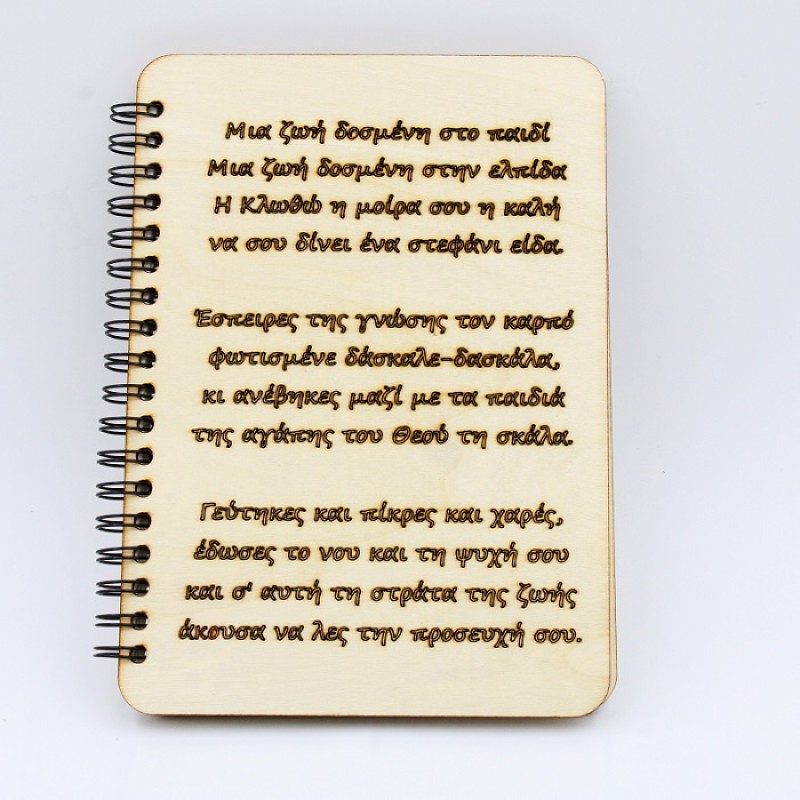 Μια ζωή δοσμένη στο παιδί
Μια ζωή δοσμένη στην ελπίδα
Η Κλωθώ η μοίρα σου η καλή
να σου δίνει ένα στεφάνι είδα.
Έσπειρες της γνώσης τον καρπό
φωτισμένε δάσκαλε-δασκάλα,
κι ανέβηκες μαζί με τα παιδιά
της αγάπης του Θεού τη σκάλα.
Γεύτηκες και πίκρες και χαρές,
έδωσες το νου και τη ψυχή σου
και σ' αυτή τη στράτα της ζωής
άκουσα να λες την προσευχή σου.